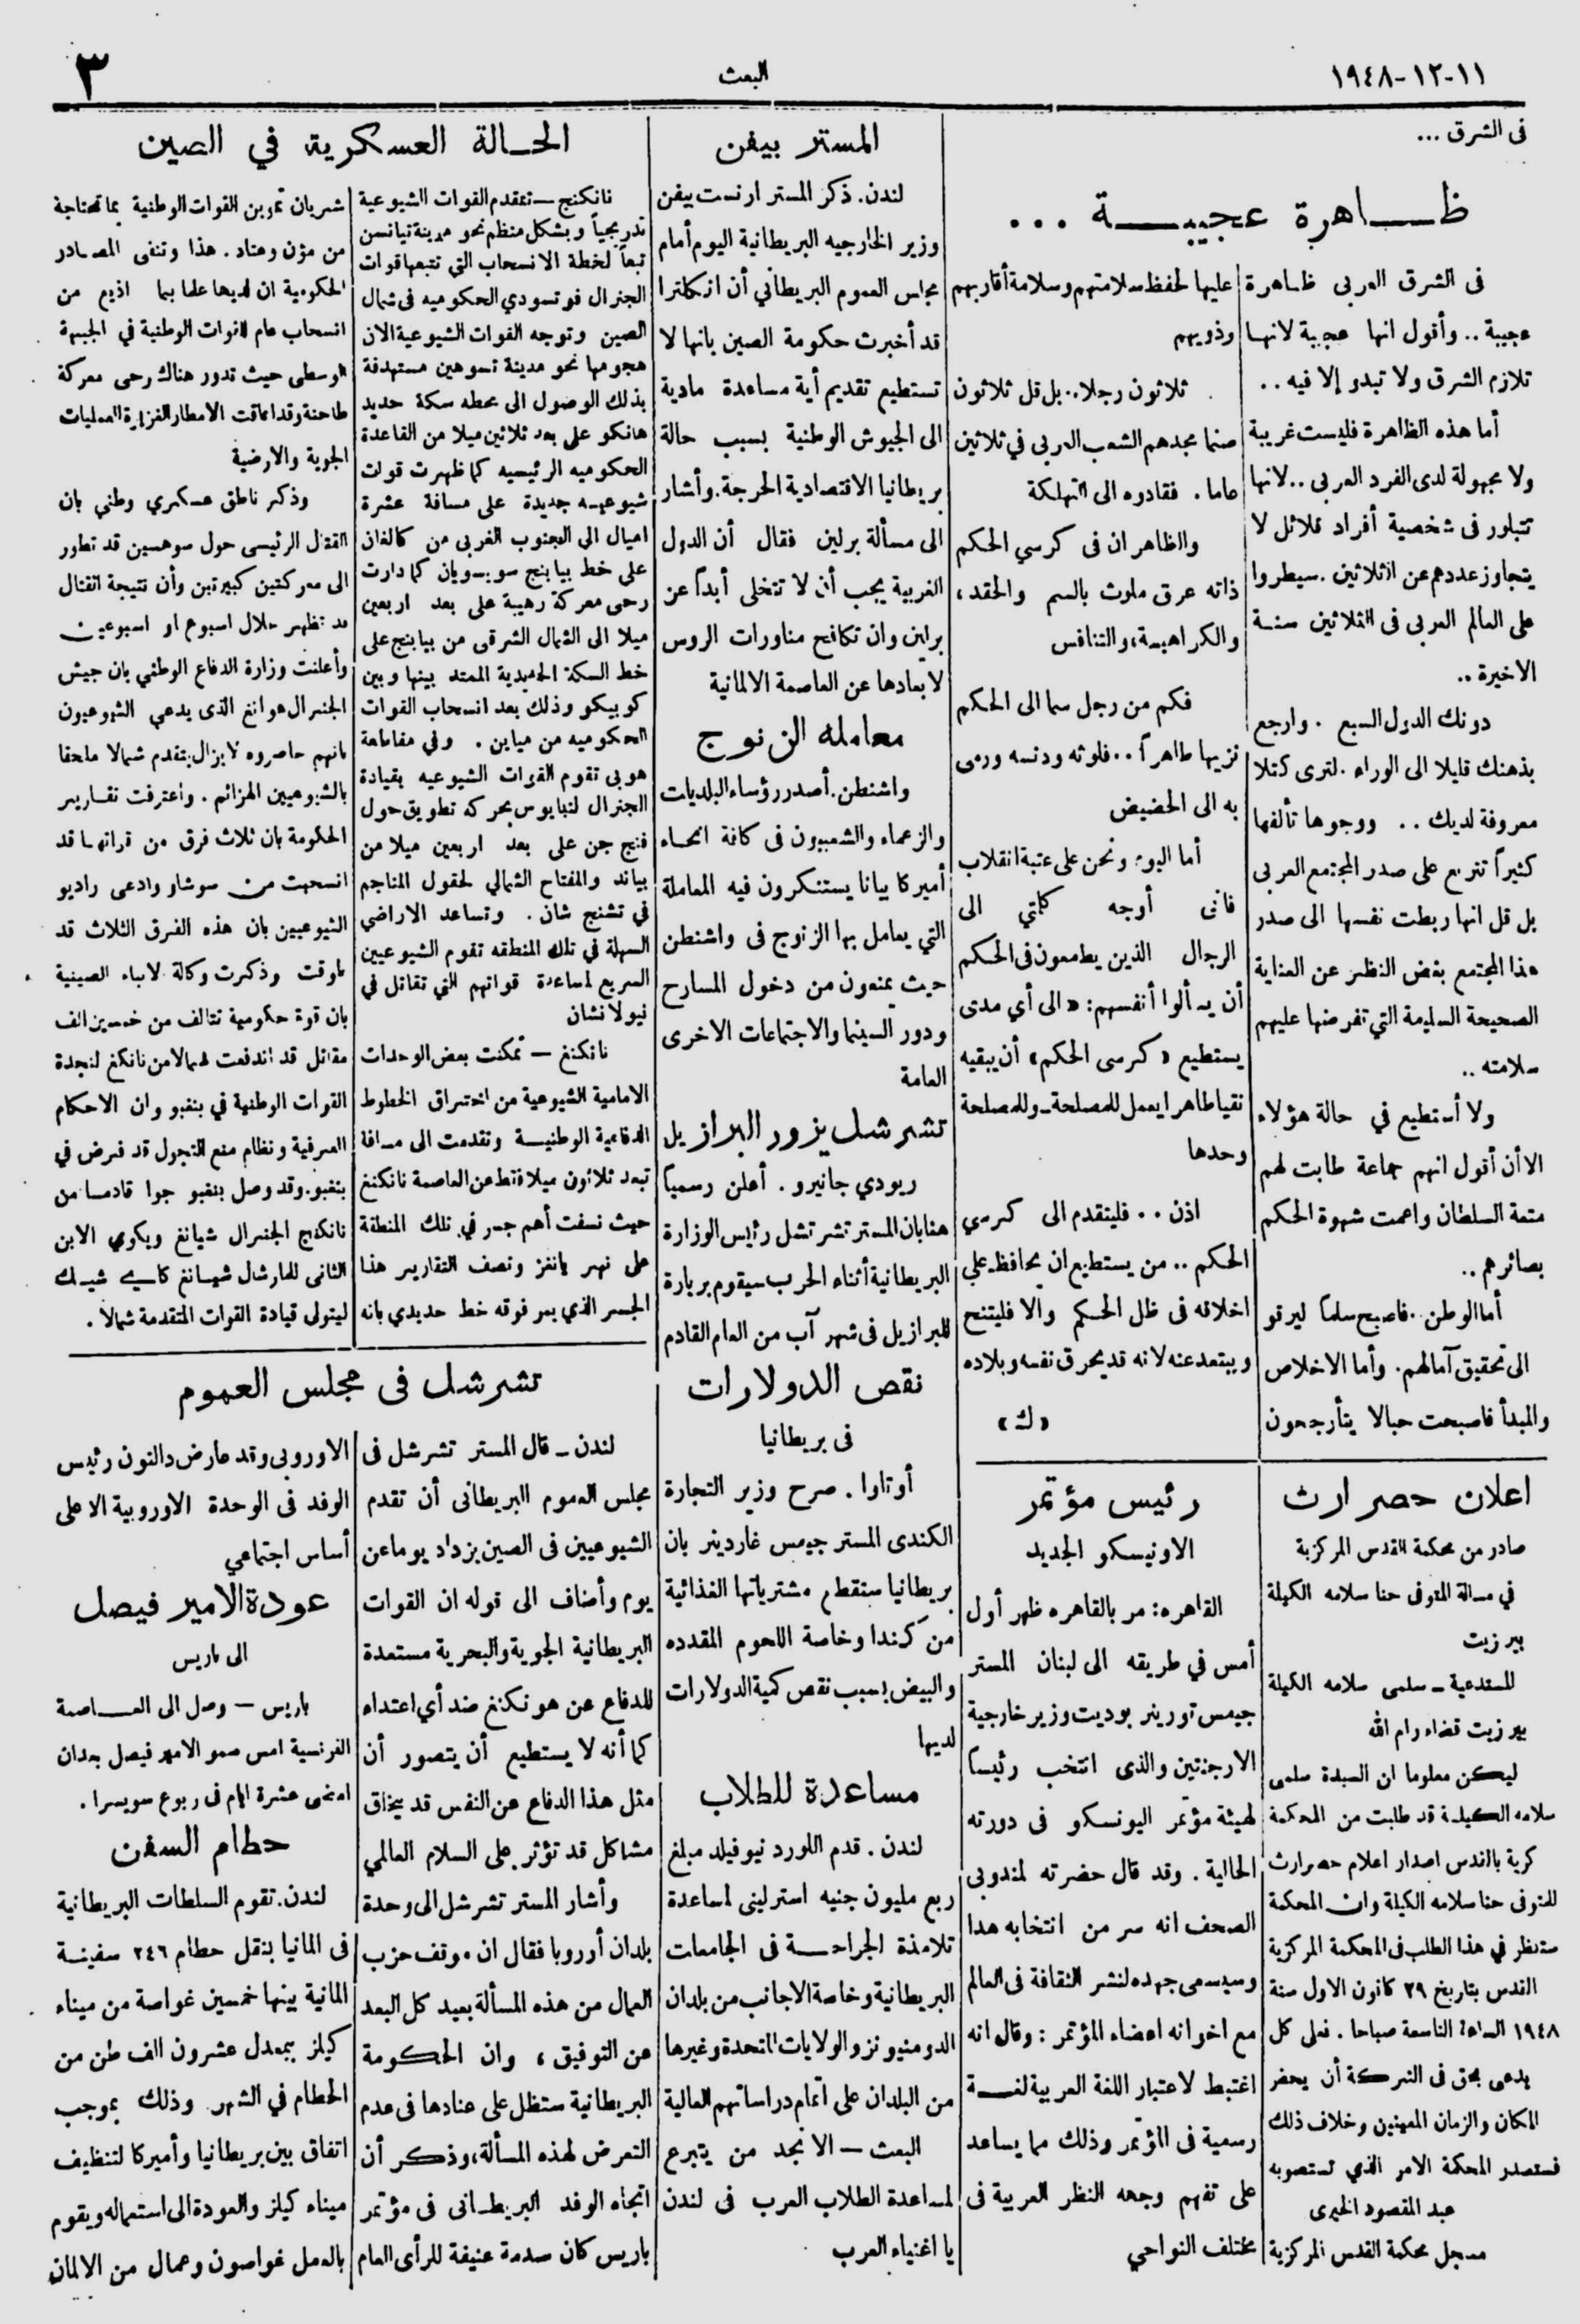 ١١-١٢-١٩٤٨
البعث
٣
فى الشرق ...
ظـــاهرة عجيبـــــة ...
فى الشرق العربى ظاهرة
عجيبة .. وأقول انها عجيبة لانها
تلازم الشرق ولا تبدو إلا فيه ..
أما هذه الظاهرة فليست غريبة
ولا مجهولة لدى الفرد العربى .. لانها
تتبلور فى شخصية أفراد قلائل لا
يتجاوز عددهم عن الثلاثين . سيطروا
على العالم العربى فى الثلاثين سنة
الاخيرة ..
دونك الدول السبع . وارجع
بذهنك قليلا الى الوراء . لترى كتلا
معروفة لديك .. ووجوها تألفها
كثيراً تتربع على صدر المجتمع العربى
بل قل انها ربطت نفسها الى صدر
هذا المجتمع بغض النظر عن العناية
الصحيحة السليمة التي تفرضها عليهم
سلامته ..
ولا أستطيع في حالة هؤلاء
الا أن أقول انهم جماعة طابت لهم
متعة السلطان واعمت شهوة الحكم
بصائرهم ..
أما الوطن .. فاصبح سلماً ليرقو
الى تحقيق آمالهم . وأما الاخلاص
والمبدأ فاصبحت حبالا يتأرجحون
عليها لحفظ سلامتهم وسلامة أقاربهم
وذويهم
ثلاثون رجلا .. بل قل ثلاثون
صنما مجدهم الشعب العربى في ثلاثين
عاما . فقادوه الى التهلكة
والظاهر ان فى كرسي الحكم
ذاته عرق ملوث بالسم والحقد ،
والكراهية ، والتنافس
فكم من رجل سما الى الحكم
نزيها طاهراً .. فلوثه ودنسه ورمى
به الى الحضيض
أما اليوم ونحن على عتبة انقلاب
فانى أوجه كلمتي الى
الرجال الذين يطمعون فى الحكم
أن يسألوا أنفسهم : « الى أي مدى
يستطيع « كرسى الحكم » أن يبقيه
نقيا طاهرا يعمل للمصلحة - وللمصلحة
وحدها
اذن .. فليتقدم الى كرسي
الحكم .. من يستطيع ان يحافظ علي
اخلاقه فى ظل الحكم والا فليتنح
ويبتعد عنه لانه قد يحرق نفسه وبلاده
« ك »
اعلان حصر ارث
صادر من محكمة القدس المركزية
في مسالة المتوفى حنا سلامه الكيلة
بير زيت
المستدعية - سلمى سلامه الكيلة
بير زيت قضاء رام الله
ليكن معلوما ان السيدة سلمى
سلامه الكيلة قد طلبت من المحكمة
كزية بالقدس اصدار اعلام حصر ارث
للمتوفى حنا سلامه الكيلة وان المحكمة
ستنظر في هذا الطلب فى المحكمة المركزية
القدس بتاريخ ٢٩ كانون الاول سنة
١٩٤٨ الساعة التاسعة صباحا . فعلى كل
يدعى بحق فى التركة أن يحضر
المكان والزمان المعينين وخلاف ذلك
فستصدر المحكمة الامر الذي تستصوبه
عبد المقصود الخيرى
مسجل محكمة القدس المركزية
رئيس مؤتمر
الاونيسكو الجديد
القاهره : مر بالقاهره ظهر أول
أمس في طريقه الى لبنان المستر
جيمس تورينر بوديت وزير خارجية
الارجنتين والذى انتخب رئيساً
لهيئة مؤتمر اليونسكو فى دورته
الحالية . وقد قال حضرته لمندوبى
الصحف انه سر من انتخابه هدا
وسيسعى جهده لنشر الثقافة فى العالم
مع اخوانه اعضاء المؤتمر : وقال انه
اغتبط لاعتبار اللغة العربية لغة
رسمية فى المؤتمر وذلك مما يساعد
على تفهم وجهه النظر العربية فى
مختلف النواحي
المستر بيفن
لندن . ذكر المستر ارنست بيفن
وزير الخارجيه البريطانية اليوم أمام
مجلس العموم البريطاني أن انكلترا
قد أخبرت حكومة الصين بانها لا
تستطيع تقديم أية مساعدة مادية
الى الجيوش الوطنية بسبب حالة
بريطانيا الاقتصادية الحرجة . وأشار
الى مسألة برلين فقال أن الدول
الغربية يجب أن لا تتخلى أبداً عن
برلين وان تكافح مناورات الروس
لابعادها عن العاصمة الالمانية
معامله الزنوج
واشنطن . أصدر رؤساء البلديات
والزعماء والشعبيون فى كافة انحاء
أميركا بيانا يستنكرون فيه المعاملة
التي يعامل بها الزنوج فى واشنطن
حيث يمنعون من دخول المسارح
ودور السينما والاجتماعات الاخرى
العامة
تشرشل يزور البرازيل
ريودي جانيرو . أعلن رسمياً
هنا بان المستر تشرتشل رئيس الوزارة
البريطانية أثناء الحرب سيقوم بزيارة
للبرازيل فى شهر آب من العام القادم
نقص الدولارات
فى بريطانيا
أوتاوا . صرح وزير التجارة
الكندى المستر جيمس غاردينر بان
بريطانيا ستقطع مشترياتها الغذائية
من كندا وخاصة اللحوم المقدده
والبيض بسبب نقص كمية الدولارات
لديها
مساعدة للطلاب
لندن . قدم اللورد نيوفيلد مبلغ
ربع مليون جنيه استرلينى لمساعدة
تلامذة الجراحة فى الجامعات
البريطانية وخاصة الاجانب من بلدان
الدومنيونز والولايات المتحدة وغيرها
من البلدان على اتمام دراساتهم العالية
البعث — الا نجد من يتبرع
لمساعدة الطلاب العرب فى لندن
يا اغنياء العرب
الحــالة العسكرية في الصين
نانكنج — تتقدم القوات الشيوعية
تدريجياً وبشكل منظم نحو مدينة تيانسن
تبعاً لخطة الانسحاب التي تتبعها قوات
الجنرال فوتسودي الحكوميه فى شمال
الصين وتوجه القوات الشيوعية الان
هجومها نحو مدينة تسوهين مستهدفة
بذلك الوصول الى محطه سكة حديد
هانكو على بعد ثلاثين ميلا من القاعدة
الحكوميه الرئيسيه كما ظهرت قوات
شيوعيه جديدة على مسافة عشرة
اميال الى الجنوب الغربى من كالغان
على خط بيابنج سوبسويان كما دارت
رحى معركة رهيبة على بعد اربعين
ميلا الى الشمال الشرقى من بيابنج على
خط السكة الحديدية الممتد بينها وبين
كوبيكو وذلك بعد انسحاب القوات
الحكوميه من مياين . وفي مقاطعة
هوبى تقوم القوات الشيوعيه بقيادة
الجنرال لنبايوس بحركه تطويق حول
فنج جن على بعد اربعين ميلا من
بياند والمفتاح الشمالي لحقول المناجم
في تشنج شان . وتساعد الاراضي
السهلة في تلك المنطقه تقوم الشيوعيين
السريع لمساعدة قواتهم التي تقاتل في
نيولانشان
نانكنغ — تمكنت بعض الوحدات
الامامية الشيوعية من اختراق الخطوط
الدفاعية الوطنية وتقدمت الى مسافة
تبعد ثلاثون ميلا فقط عن العاصمة نانكنغ
حيث نسفت أهم جسر في تلك المنطقة
على نهر يانغز وتصف التقارير هذا
الجسر الذي يمر فوقه خط حديدي بانه
شريان تموين القوات الوطنية بما تحتاجة
من مؤن وعتاد . هذا وتنفى المصادر
الحكومية ان لديها علما بما اذيع من
انسحاب عام للقوات الوطنية في الجبهة
الوسطى حيث تدور هناك رحى معركة
طاحنة وقد اعاقت الامطار الغزيرة العمليات
الجوية والارضية
وذكر ناطق عسكري وطني بان
القتال الرئيسى حول سوهسين قد تطور
الى معركتين كبيرتين وأن نتيجة القتال
قد تظهر خلال اسبوع او اسبوعين
وأعلنت وزارة الدفاع الوطني بان جيش
الجنرال هوانغ الذى يدعي الشيوعيون
بانهم حاصروه لا يزال يتقدم شمالا ملحقا
بالشيوعيين الهزائم . واعترفت تقارير
الحكومة بان ثلاث فرق من قواتها قد
انسحبت من سوشاو وادعى راديو
الشيوعيين بان هذه الفرق الثلاث قد
طوقت وذكرت وكالة لانباء الصينية
بان قوة حكومية تتالف من خمسين الف
مقاتل قد اندفعت شمالا من نانكنغ لنجدة
القوات الوطنية في بنغبو وان الاحكام
العرفية ونظام منع التجول قد فرض في
بنغبو . وقد وصل بنغبو جوا قادما من
نانكنج الجنرال شيانغ ويكوي الابن
الثانى للمارشال شيانغ كاي شيك
ليتولى قيادة القوات المتقدمة شمالا .
تشرشل فى مجلس العموم
لندن - قال المستر تشرشل فى
مجلس العموم البريطانى أن تقدم
الشيوعيين فى الصين يزداد يوما عن
يوم وأضاف الى قوله ان القوات
البريطانية الجوية والبحرية مستعدة
للدفاع عن هونكنغ ضد أي اعتداء
كما أنه لا يستطيع أن يتصور أن
مثل هذا الدفاع عن النفس قد يخلق
مشاكل قد تؤثر على السلام العالمي
وأشار المستر تشرشل الى وحدة
بلدان أوروبا فقال ان موقف حزب
العمال من هذه المسألة بعيد كل البعد
عن التوفيق ، وان الحكومة
البريطانية ستظل على عنادها فى عدم
التعرض لهذه المسألة ، وذكر أن
اتجاه الوفد البريطانى فى مؤتمر
باريس كان صدمة عنيفة للرأى العام
الاوروبى وقد عارض دالتون رئيس
الوفد فى الوحدة الاوروبية الا على
أساس اجتماعي
عودة الامير فيصل
الى باريس
باريس — وصل الى العـــاصمة
الفرنسية امس سمو الامير فيصل بعدان
امضى عشرة ايام فى ربوع سويسرا .
حطام السفن
لندن . تقوم السلطات البريطانية
فى المانيا بنقل حطام ٢٤٦ سفينة
المانية بينها خمسين غواصة من ميناء
كيلز بمعدل عشرون الف طن من
الحطام في الشهر وذلك بموجب
اتفاق بين بريطانيا وأميركا لتنظيف
ميناء كيلز والعودة الى استعماله ويقوم
بالعمل غواصون وعمال من الالمان